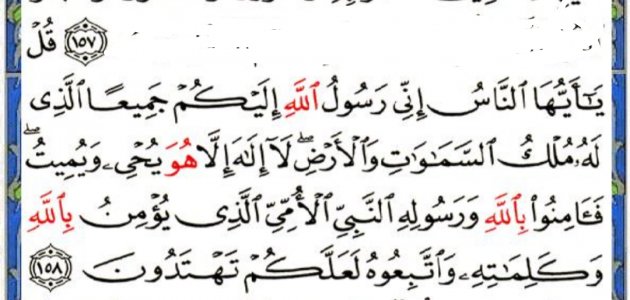 ﴿١٥٧﴾ قُلْ
يَـٰٓأَيُّهَا ٱلنَّاسُ إِنِّى رَسُولُ ٱللَّهِ إِلَيْكُمْ جَمِيعًا ٱلَّذِى
لَهُۥ مُلْكُ ٱلسَّمَـٰوَٰتِ وَٱلْأَرْضِ ۖ لَآ إِلَـٰهَ إِلَّا هُوَ يُحْىِۦ وَيُمِيتُ ۖ
فَـَٔامِنُوا۟ بِٱللَّهِ وَرَسُولِهِ ٱلنَّبِىِّ ٱلْأُمِّىِّ ٱلَّذِى يُؤْمِنُ بِٱللَّهِ
وَكَلِمَـٰتِهِۦ وَٱتَّبِعُوهُ لَعَلَّكُمْ تَهْتَدُونَ ﴿١٥٨﴾